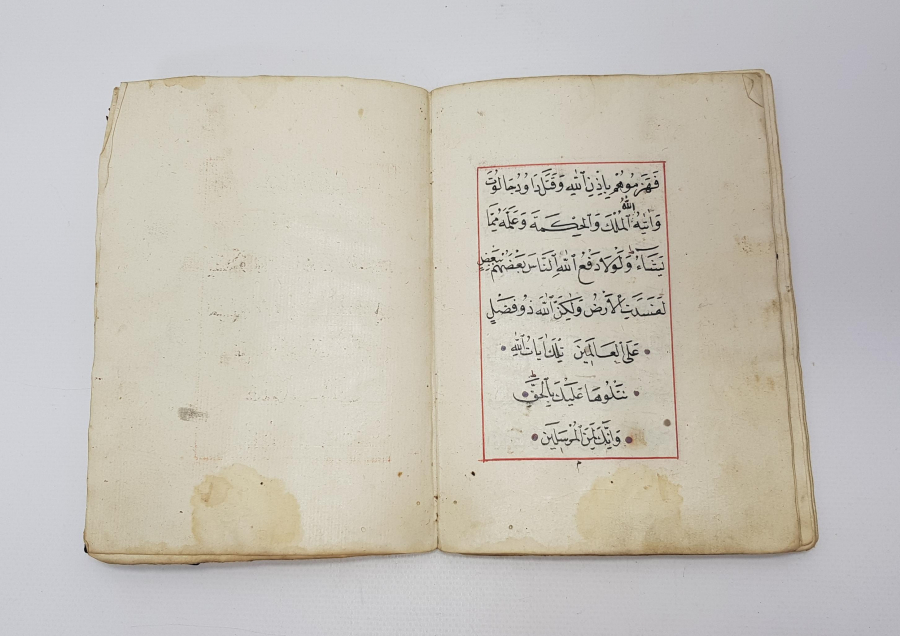 فَهَزَمُوهُمْ بِإِذْنِ ٱللَّهِ وَقَتَلَ دَاوُدُ جَالُوتَ
وَاٰتٰيهُ ٱللَّهُ ٱلْمُلْكَ وَٱلْحِكْمَةَ وَعَلَّمَهُ مِمَّا
يَشَآءُ ۗ وَلَوْلَا دَفْعُ ٱللَّهِ ٱلنَّاسَ بَعْضَهُمْ بِبَعْضٍ
لَفَسَدَتِ ٱلْأَرْضُ وَلٰكِنَّ ٱللَّهَ ذُو فَضْلٍ
عَلَى ٱلْعَالَمِينَ تِلْكَ اٰيَاتُ ٱللَّهِ
نَتْلُوهَا عَلَيْكَ بِٱلْحَقِّ ۗ
وَإِنَّكَ لَمِنَ ٱلْمُرْسَلِينَ
م